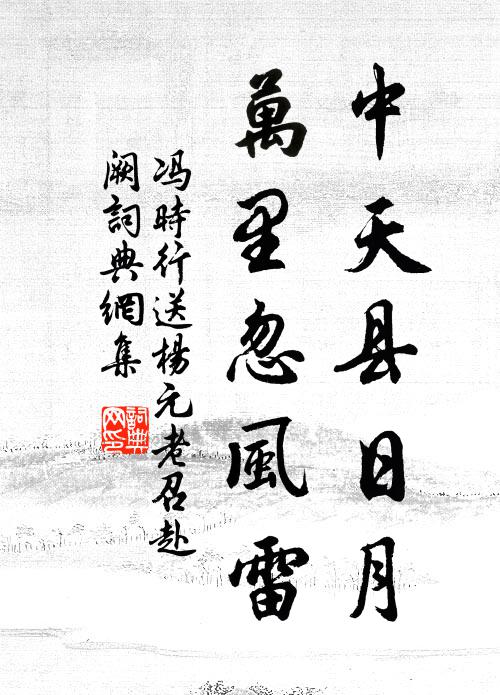 中天县日月
萬里忽風雷
冯時行送楊元老召赴
阙詞典網集
詞典
网印